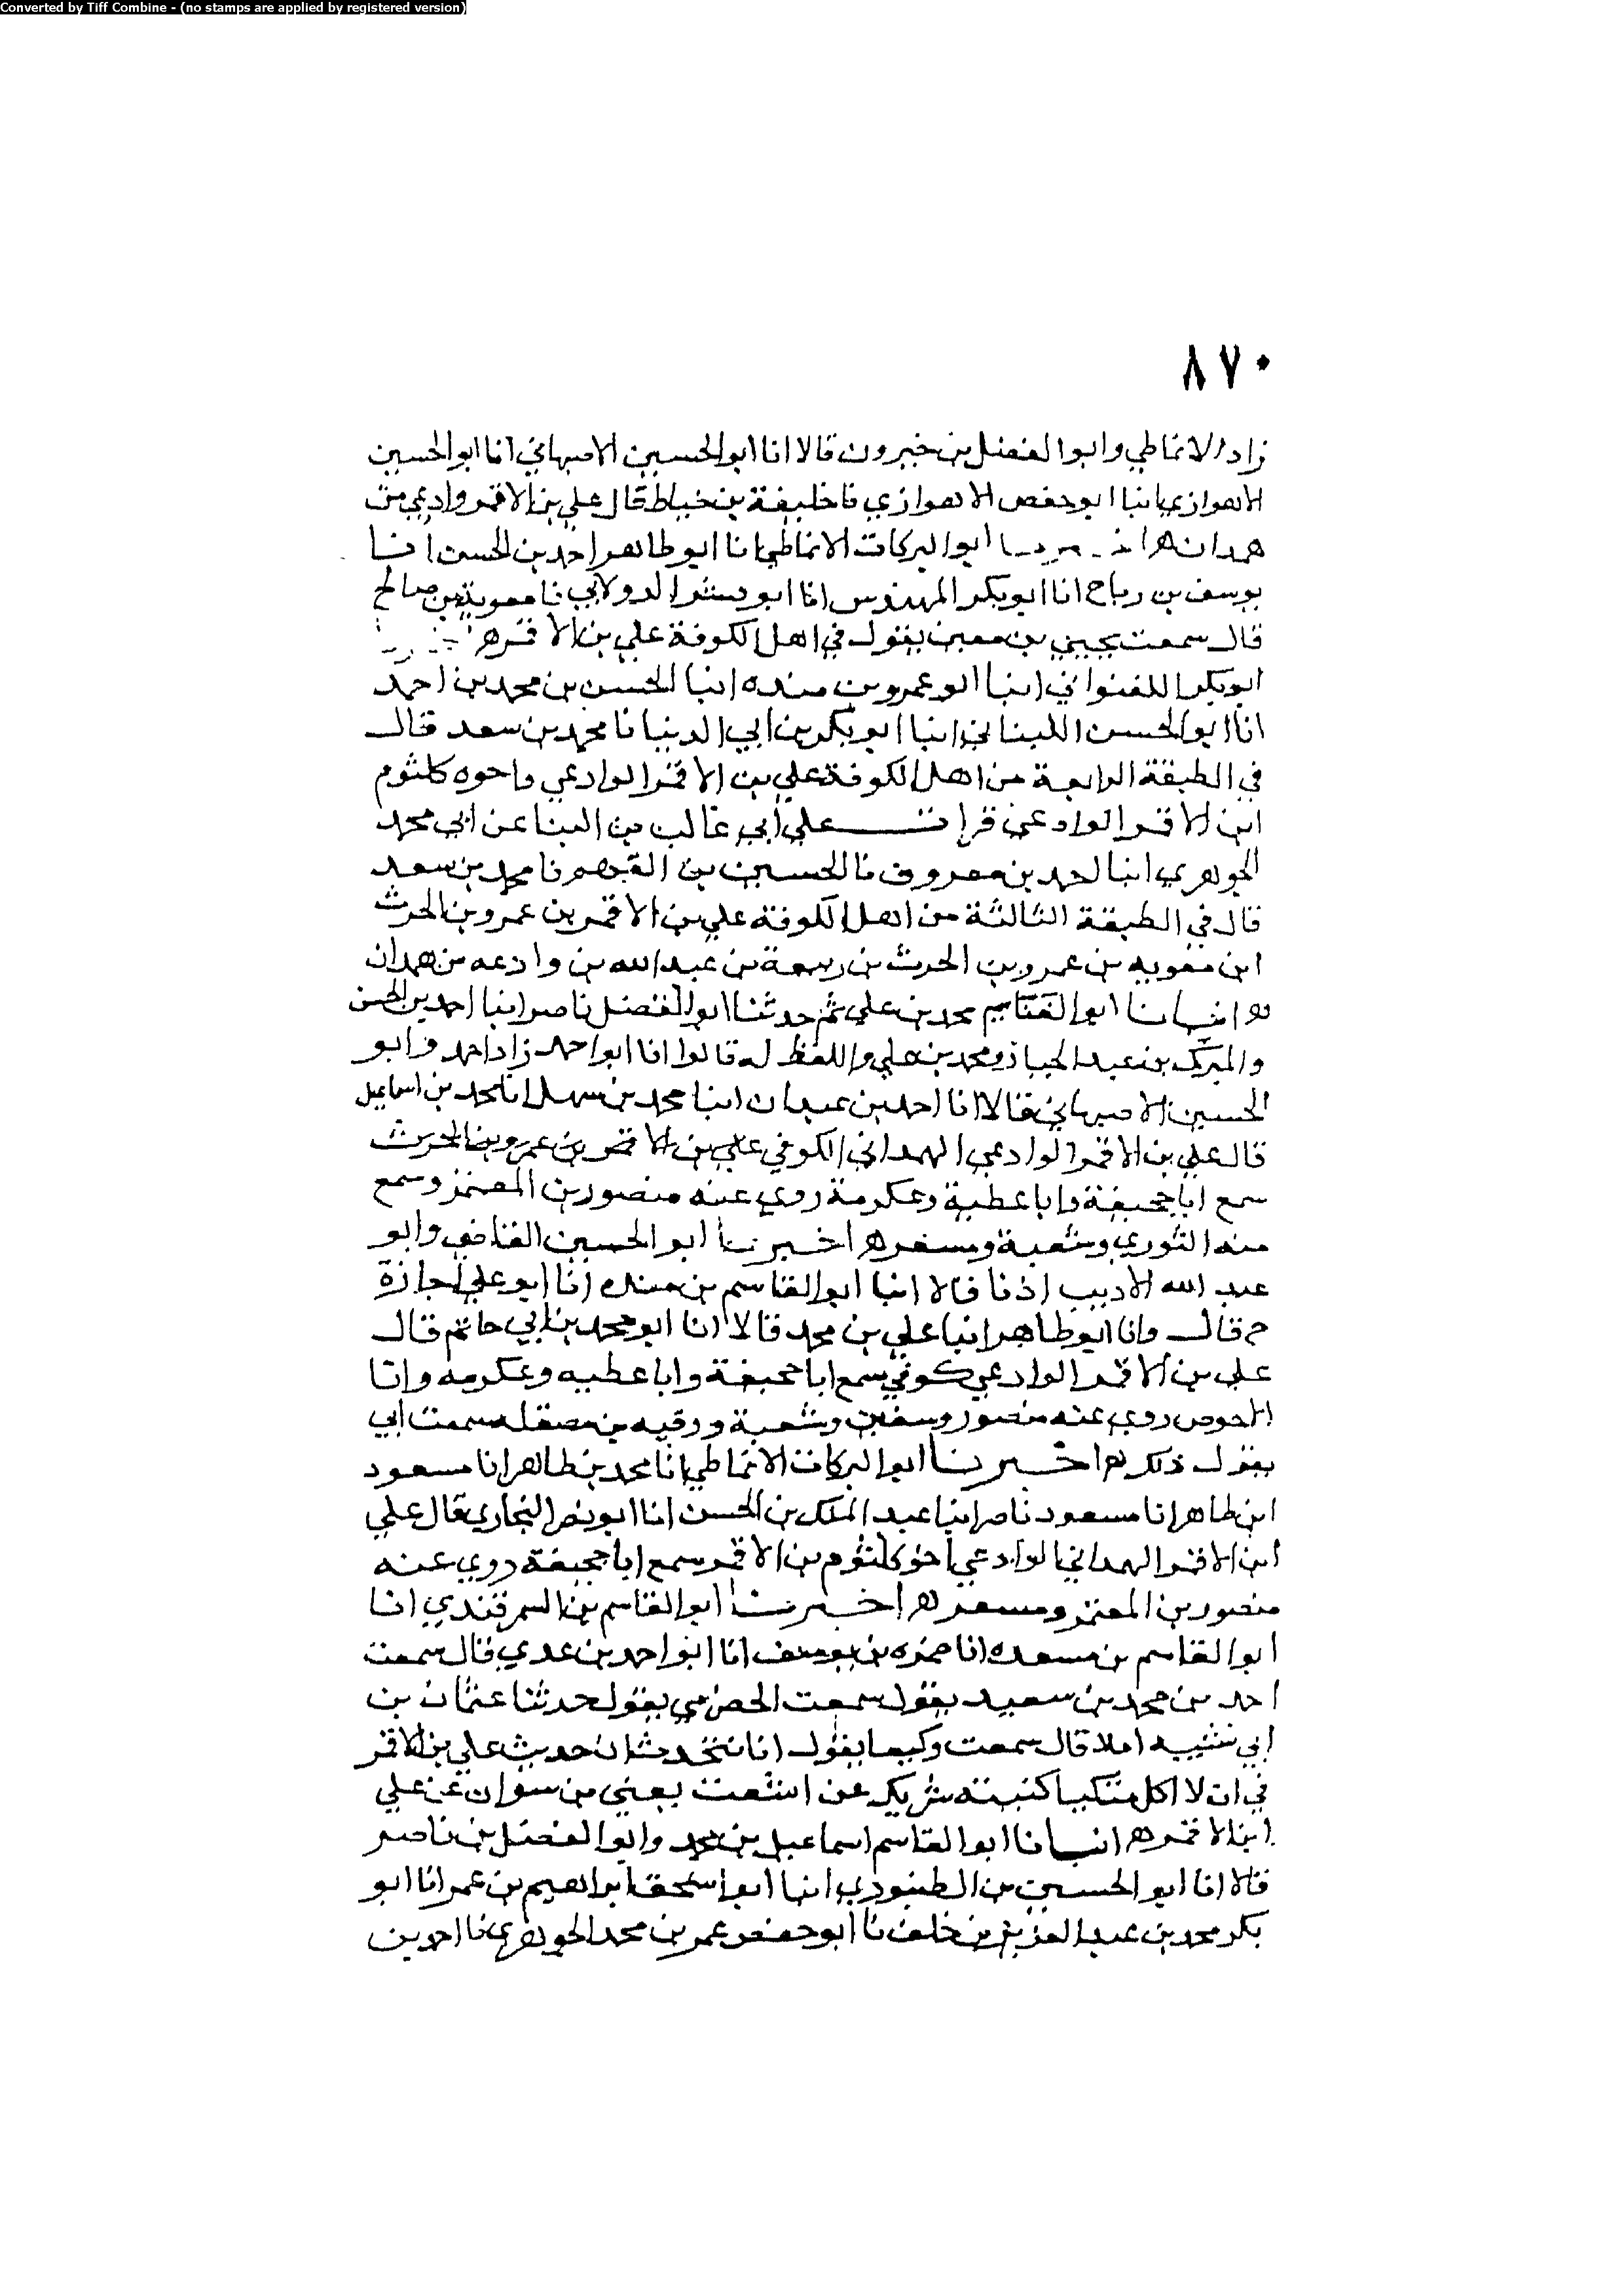 Converted by Tiff Combine - (no stamps are applied by registered version)
٨٧٠
زاد الانماطي وابوا الفضل بن خيرون قالا انا ابو الحسين الاصبهاني انا ابو الحسين
الاهوازي انبا ابو حفص الاهوازي نا خليفة بن خياط قال علي بن الاقمر وادعي من
همدان ه ابوا البركات الانماطي انا ابو طاهر احمد بن الحسن انا
يوسف بن رباح انا ابو بكر المهندس انا ابو بشر الدولابي نا معوية بن صالح
قال سمعت يحيي بن معين يقول في اهل الكوفة علي بن الاقمر ه
ابو بكر اللفتواني انبا ابو عمرو بن منده انبا الحسن بن محمد بن احمد
انا ابو الحسن اللبناني انبا ابو بكر بن ابي الدنيا نا محمد بن سعد قال
في الطبقة الرابعة من اهل الكوفة علي بن الاقمر الوادعي واخوه كلثوم
ابن الاقمر الوادعي قرات علي ابي غالب بن البنا عن ابي محمد
الجوهري انبا احمد بن معروف نا الحسين بن الفهم نا محمد بن سعد
قال في الطبقة الثالثة من اهل الكوفة علي بن الاقمر بن عمرو بن الحرث
ابن معويه بن عمرو بن الحرث بن ربيعة بن عبد الله بن وادعه من همدان
ه انبانا ابوا الغنايم محمد بن علي ثم حدثنا ابو الفضل ناصر انبا احمد بن الحسن
والمبرك بن عبد الجبار ومحمد بن علي واللفظ له قالوا انا ابو احمد زاد احمد وابو
الحسين الاصبهاني قالا انا احمد بن عبدان انبا محمد بن سهل انا محمد بن اسماعيل
قال علي بن الاقمر الوادعي الهمداني الكوفي علي بن الاقمر بن عمرو بن الحرث
سمع ابا جحيفة وابا عطية وعكرمة روي عنه منصور بن المعتمر وسمع
منه الثوري وشعبة ومسعر ه اخبرنا ابو الحسين القاضي وابو
عبد الله الاديب اذنا قالا انبا ابو القاسم بن منده انا ابو علي اجازة
ح قال وانا ابو طاهر انبا علي بن محمد قالا انا ابو محمد بن ابي حاتم قال
علي بن الاقمر الوادعي كوفي سمع ابا جحيفة وابا عطيه وعكرمه وابا
الاحوص روي عنه منصور وسفين وشعبة ورقبه بن مصقله سمعت ابي
يقول ذلك ه اخبرنا ابوا البركات الانماطي انا محمد بن طاهر انا مسعود
ابن طاهر انا مسعود ناصر انبا عبد الملك بن الحسن انا ابو نصر البخاري قال علي
ابن الاقمر الهمداني الوادعي اخو كلثوم بن الاقمر سمع ابا جحيفة روي عنه
منصور بن المعتمر ومسعر ه اخبرنا ابو القاسم بن السمرقندي انا
ابوا القاسم بن مسعده انا حمزه بن يوسف انا ابو احمد بن عدي قال سمعت
احمد بن محمد بن سعيد يقول سمعت الحضرمي يقول حدثنا عثمان بن
ابي شيبه املا قال سمعت وكيعا يقول انا نتحدث ان حديث علي بن الاقمر
في ان لا اكل متكيا كتبته شريك عن اشعث يعني من سوار عن علي
ابن الاقمر ه انبانا ابوا القاسم اسماعيل بن محمد وابوا الفضل بن ناصر
قالا انا ابو الحسين بن الطيوري انبا ابو اسحق ابراهيم بن عمر انا ابو
بكر محمد بن عبد العزيز بن خلف نا ابو حفص عمر بن محمد الجوهري نا احمد بن